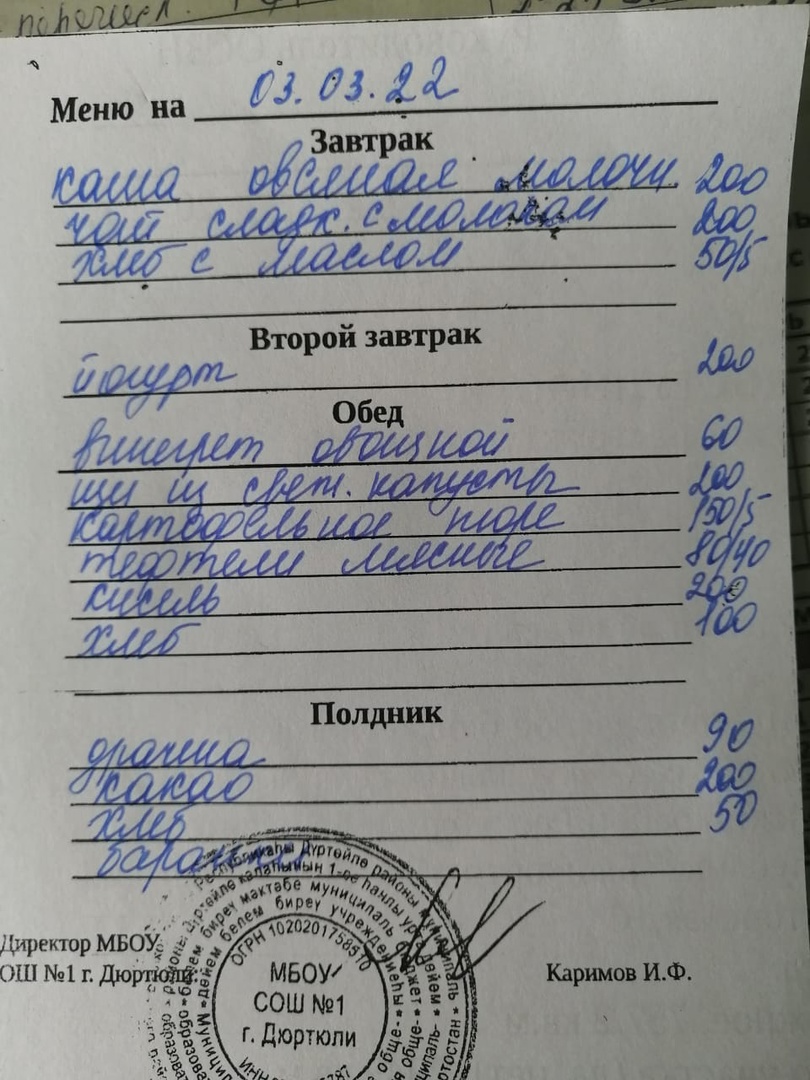 Меню на 03.03.22
Завтрак
каша овсяная молочн. 200
чай сладк. с молоком 200
хлеб с маслом 50/5
Второй завтрак
йогурт 200
Обед
винегрет овощной 60
щи из свеж. капусты 200
картофельное пюре 150/5
тефтели мясные 80/40
кисель 200
хлеб 100
Полдник
драчена 90
какао 200
хлеб 50
баранки
Директор МБОУ
ОШ №1 г. Дюртюли
Каримов И.Ф.
ОГРН 1020201758510
МБОУ
СОШ №1
г. Дюртюли